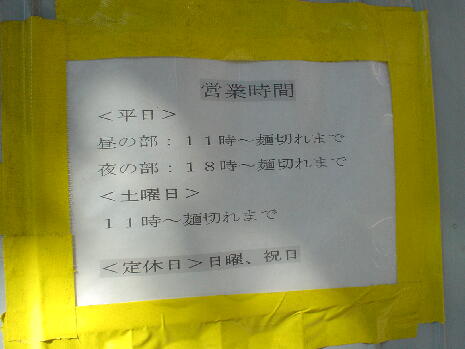 営業時間
＜平日＞
昼の部：１１時～麺切れまで
夜の部：１８時～麺切れまで
＜土曜日＞
１１時～麺切れまで
＜定休日＞日曜、祝日